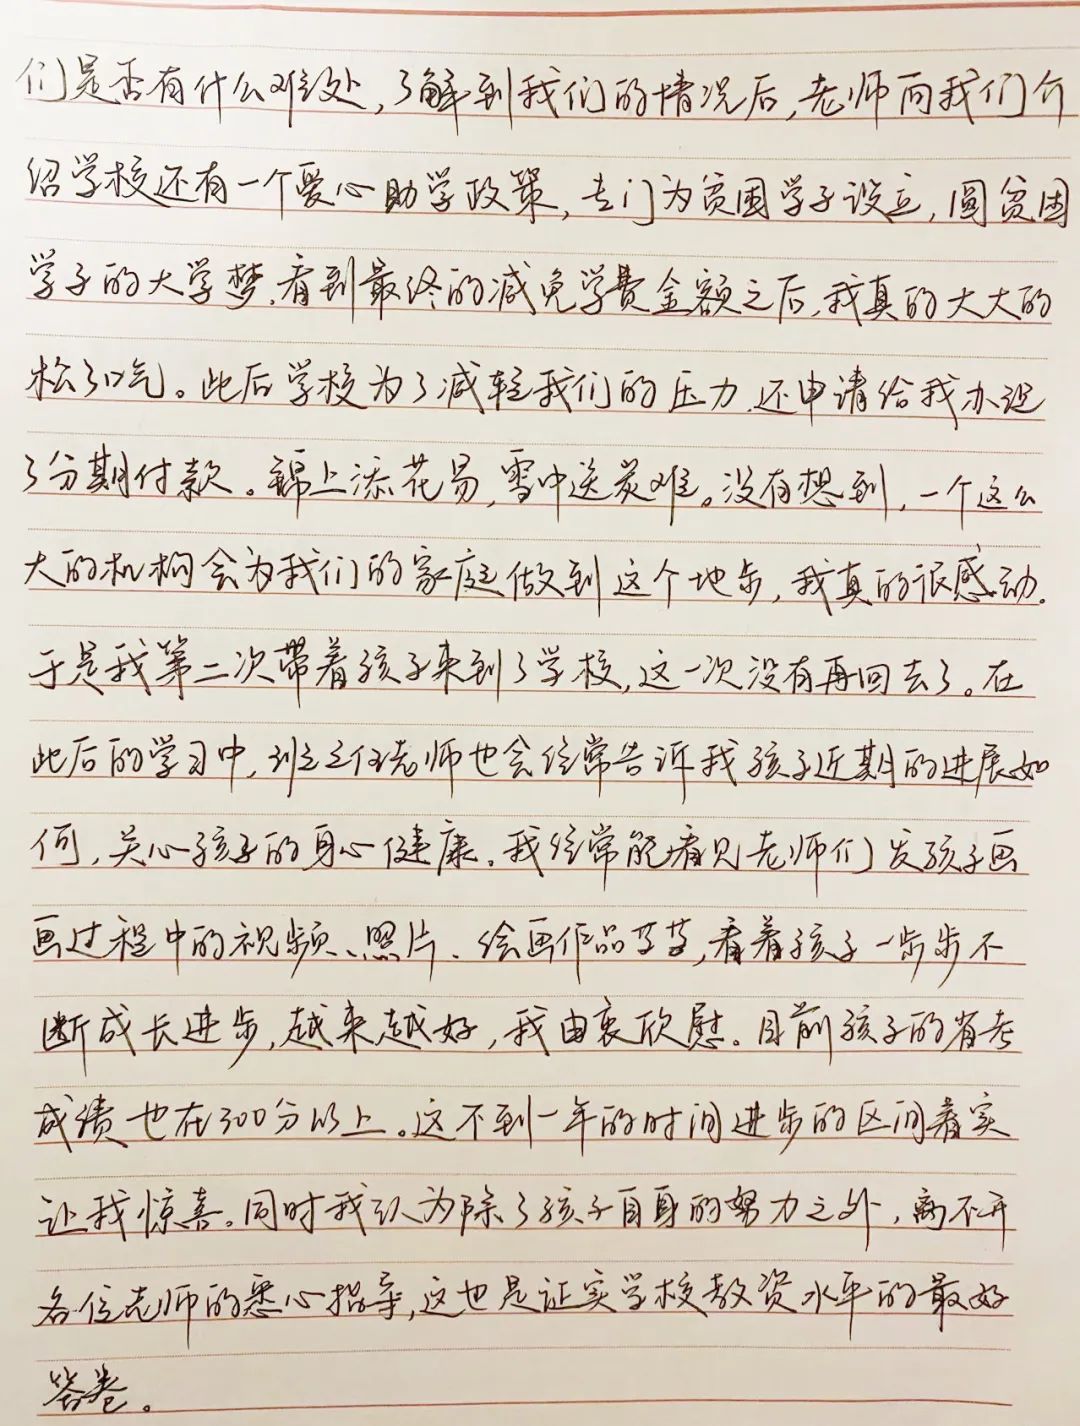 们是否有什么难处，了解到我们的情况后，老师向我们介
绍学校还有一个爱心助学政策，专门为贫困学子设立，圆贫困
学子的大学梦，看到最终的减免学费金额之后，我真的大大的
松了口气。此后学校为了减轻我们的压力，还申请给我办理
了分期付款。锦上添花易，雪中送炭难。没有想到，一个这么
大的机构会为我们的家庭做到这个地步，我真的很感动。
于是我第二次带着孩子来到了学校，这一次没有再回去了。在
此后的学习中，班主任老师也会经常告诉我孩子近期的进展如
何，关心孩子的身心健康。我经常能看见老师们发孩子画
画过程中的视频、照片、绘画作品等等，看着孩子一步步不
断成长进步，越来越好，我由衷欣慰。目前孩子的省考
成绩也在200分以上。这不到一年的时间进步的区间着实
让我惊喜。同时我认为除了孩子自身的努力之外，离不开
各位老师的悉心指导，这也是证实学校教资水平的最好
答卷。